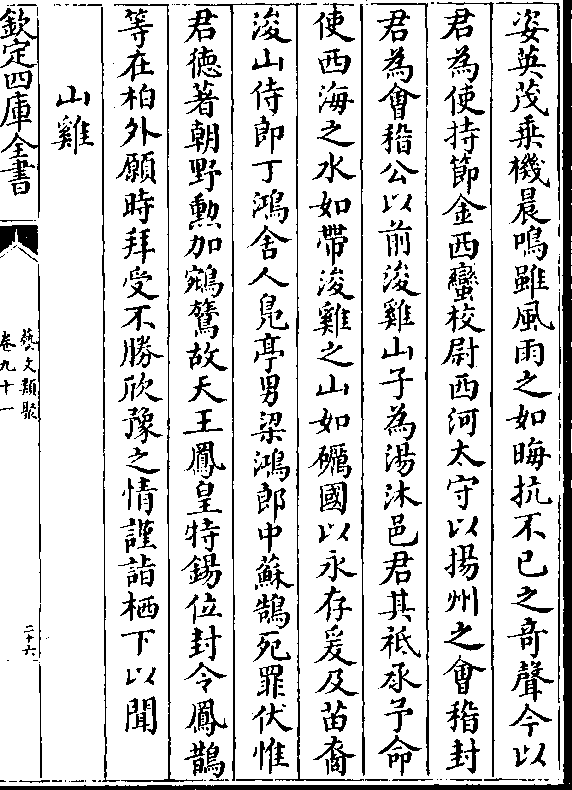 姿英茂乗機晨鳴雖風雨之如晦抗不已之竒聲今以
君為使持節金西蠻校尉西河太守以揚州之會稽封
君為㑹稽公以前浚雞山子為湯沐邑君其祗承予命
使西海之水如帶浚雞之山如礪國以永存爰及苗裔
浚山侍郎丁鴻舍人鳬亭男梁鴻郎中蘇鵠死罪伏惟
君徳著朝野勲加鵷鷟故天王鳳皇特錫位封令鳳鵲
等在柏外願時拜受不勝欣豫之情謹詣栖下以聞
山雞
欽定四庫全書
藝文類聚
卷九十一
二十六